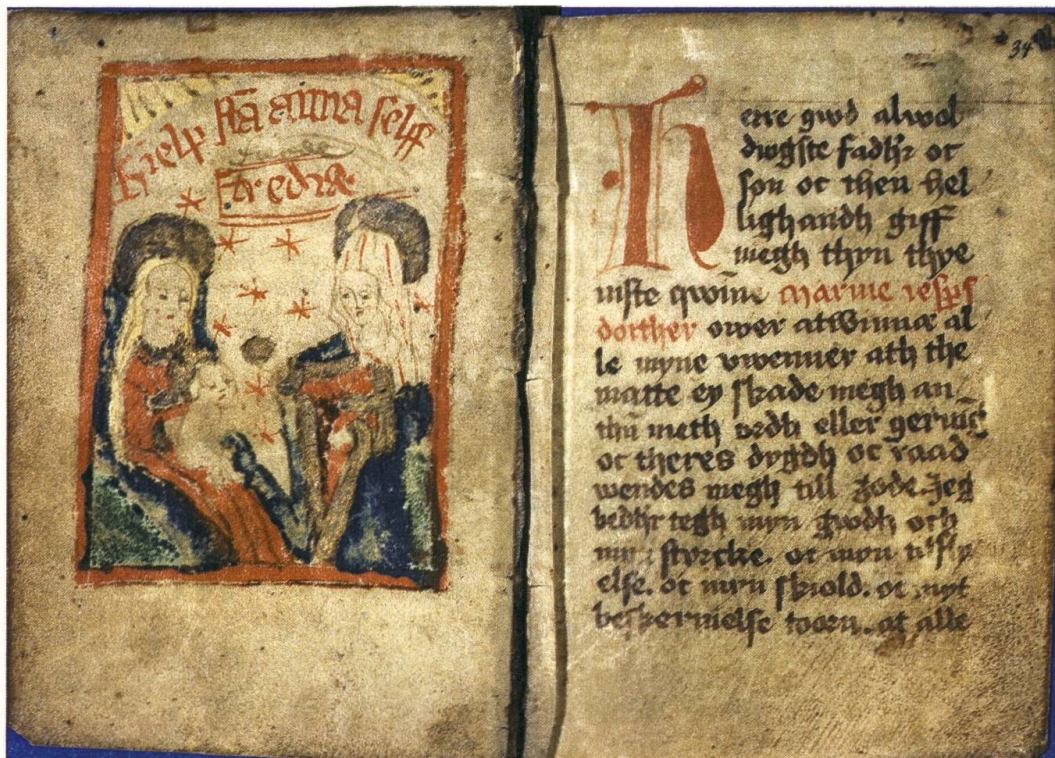 hielp sta anna selff
tredie
34
Herre gwd alwol
dwgste fadhr oc
søn oc then hel
lighandh giff
megh thyn thye
niste qwinne marine iesps
dotther ower atwinnæ al
le myne vwenner ath the
matte ey skade megh an
thn meth ordh eller gerning
oc theres dygdh oc raad
wendes megh till gode. Jeg
bedhr tegh myn gwdh och
myn styrcke. oc myn tilfly
else. oc myn skiold. oc myt
beskermelse toorn. at alle